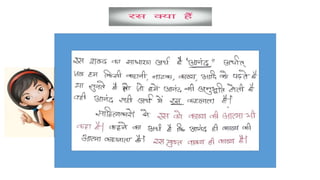 रस क्या हैं
रस शब्द का साधारण अर्थ है "आनंद" अर्थात्
जब हम किसी कहानी, नाटक, काव्य, आदि को पढ़ते हैं
या सुनते हैं तो जो हमें आनंद की अनुभूति होती है
वही आनंद सही अर्थ में रस कहलाता है।
साहित्यकारों ने रस को काव्य की आत्मा भी
कहा है। कहने का अर्थ है कि आनंद ही काव्य की
आत्मा कहलाता है। रसयुक्त वाक्य ही काव्य है।